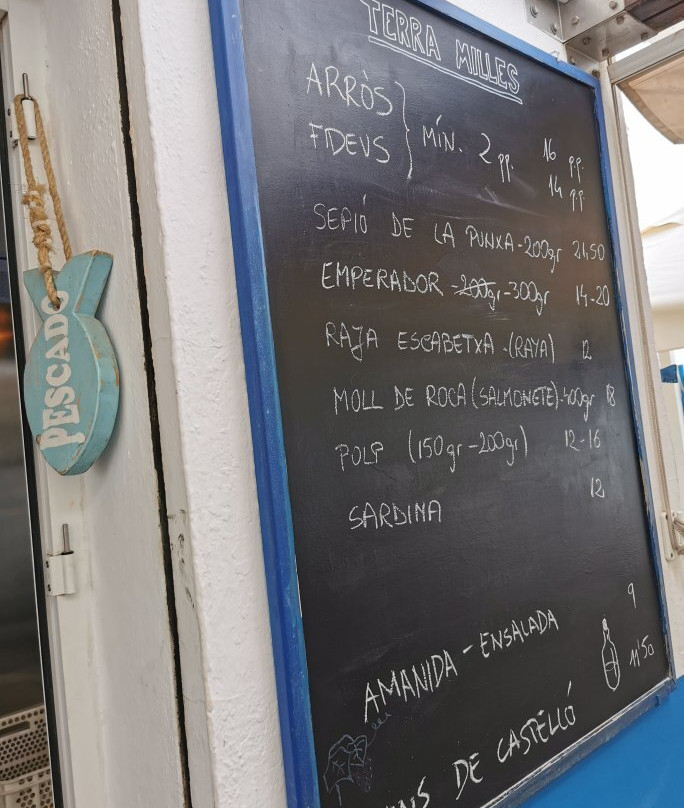 TERRA MILLES
ARRÒS } MÍN. 2 pp. 16 pp.
FIDEUS 14 pp
SEPIÓ DE LA PUNXA - 200gr 21,50
EMPERADOR - 200gr - 300gr 14-20
RAJA ESCABETXA - (RAYA) 12
MOLL DE ROCA (SALMONETE) - 400gr 18
POLP (150gr - 200gr) 12-16
SARDINA 12
AMANIDA - ENSALADA 9
DE CASTELLÓ 11'50
PESCADO